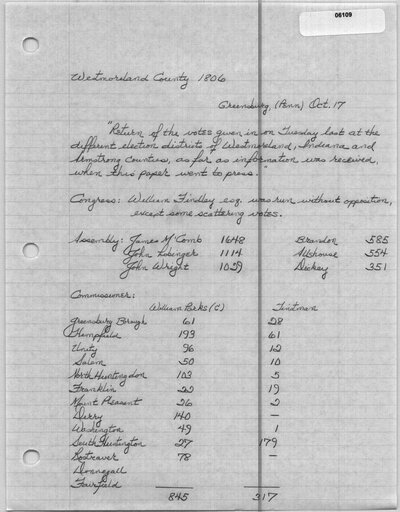 06109
Westmoreland County 1806
Greensburg, (Penn) Oct. 17
"Return of the votes given in on Tuesday last at the
different election districts of Westmoreland, Indiana and
Armstrong Counties, as far as information was received,
when this paper went to press."
Congress: William Findley esq. was run without opposition,
except some scattering votes.
Assembly: James M'Comb 1648 Brandon 585
John Lobinger 1114 Altshouse 554
John Wright 1029 Dickey 351
Commissioner:
William Parks (C) Tintman
Greensburg Borough 61 28
Hempfield 193 61
Unity 96 12
Salem 50 10
North Huntingdon 103 5
Franklin 22 19
Mount Pleasant 26 2
Derry 140 —
Washington 49 1
South Huntington 27 179
Rostraver 78 —
Donnegall
Fairfield
845 317